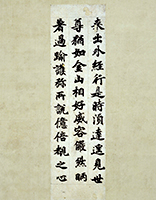 來出外經行是時須達遥見世
尊猶如金山相好威容儼然昞
著過踰護弥所説億倍覩之心